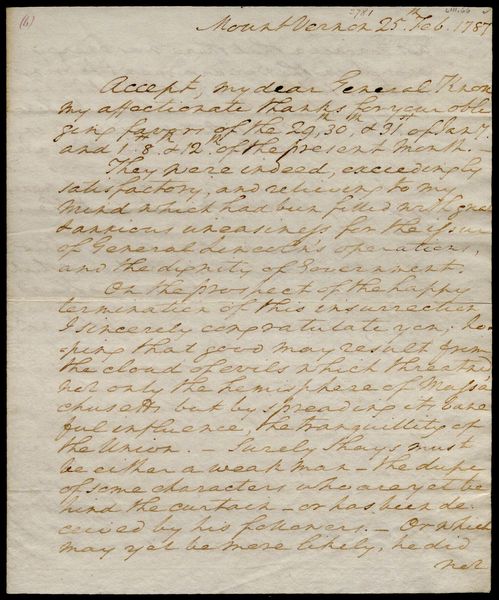 (6)
2781
Mount Vernon 25th Feb. 1787
Accept, my dear General Knox
my affectionate thanks for your obli
ging favors of the 29th, 30th, & 31st of Jany
and 1. 8th & 12th of the present month. –
They were indeed, exceedingly
satisfactory, and relieving to my
mind which had been filled with great
& anxious uneasiness for the issue
of General Lincoln's operations,
and the dignity of Government.
On the prospect of the happy
termination of this insurrection
I sincerely congratulate you; ho
ping that good may result from
the cloud of evils which threatned
not only the hemisphere of Massa
chusetts but by spreading its bane
ful influence, the tranquillity of
the Union. – Surely Shays must
be either a weak man – the dupe
of some characters who are yet be
hind the curtain – or has been de
ceived by his followers. – Or which
may yet be more likely, he did
not